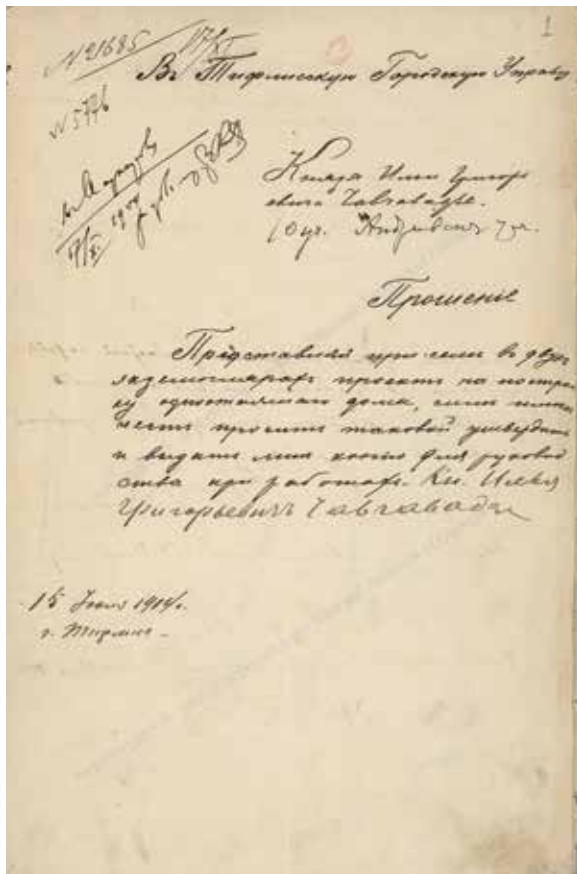 1
№ 21685 17/XI
Въ Тифлисскую Городскую Управу
№ 5776
Князя Ильи Григорь
евича Чавчавадзе.
10 уч.
Прошеніе
Представляя при семъ въ двухъ
экземплярахъ проектъ на построй
ку одноэтажнаго дома, симъ имѣю
честь просить таковой утвердить
и выдать мнѣ копію для руковод
ства при работахъ. Кн. Илья
Григорьевичъ Чавчавадзе
15
г. Тифлисъ